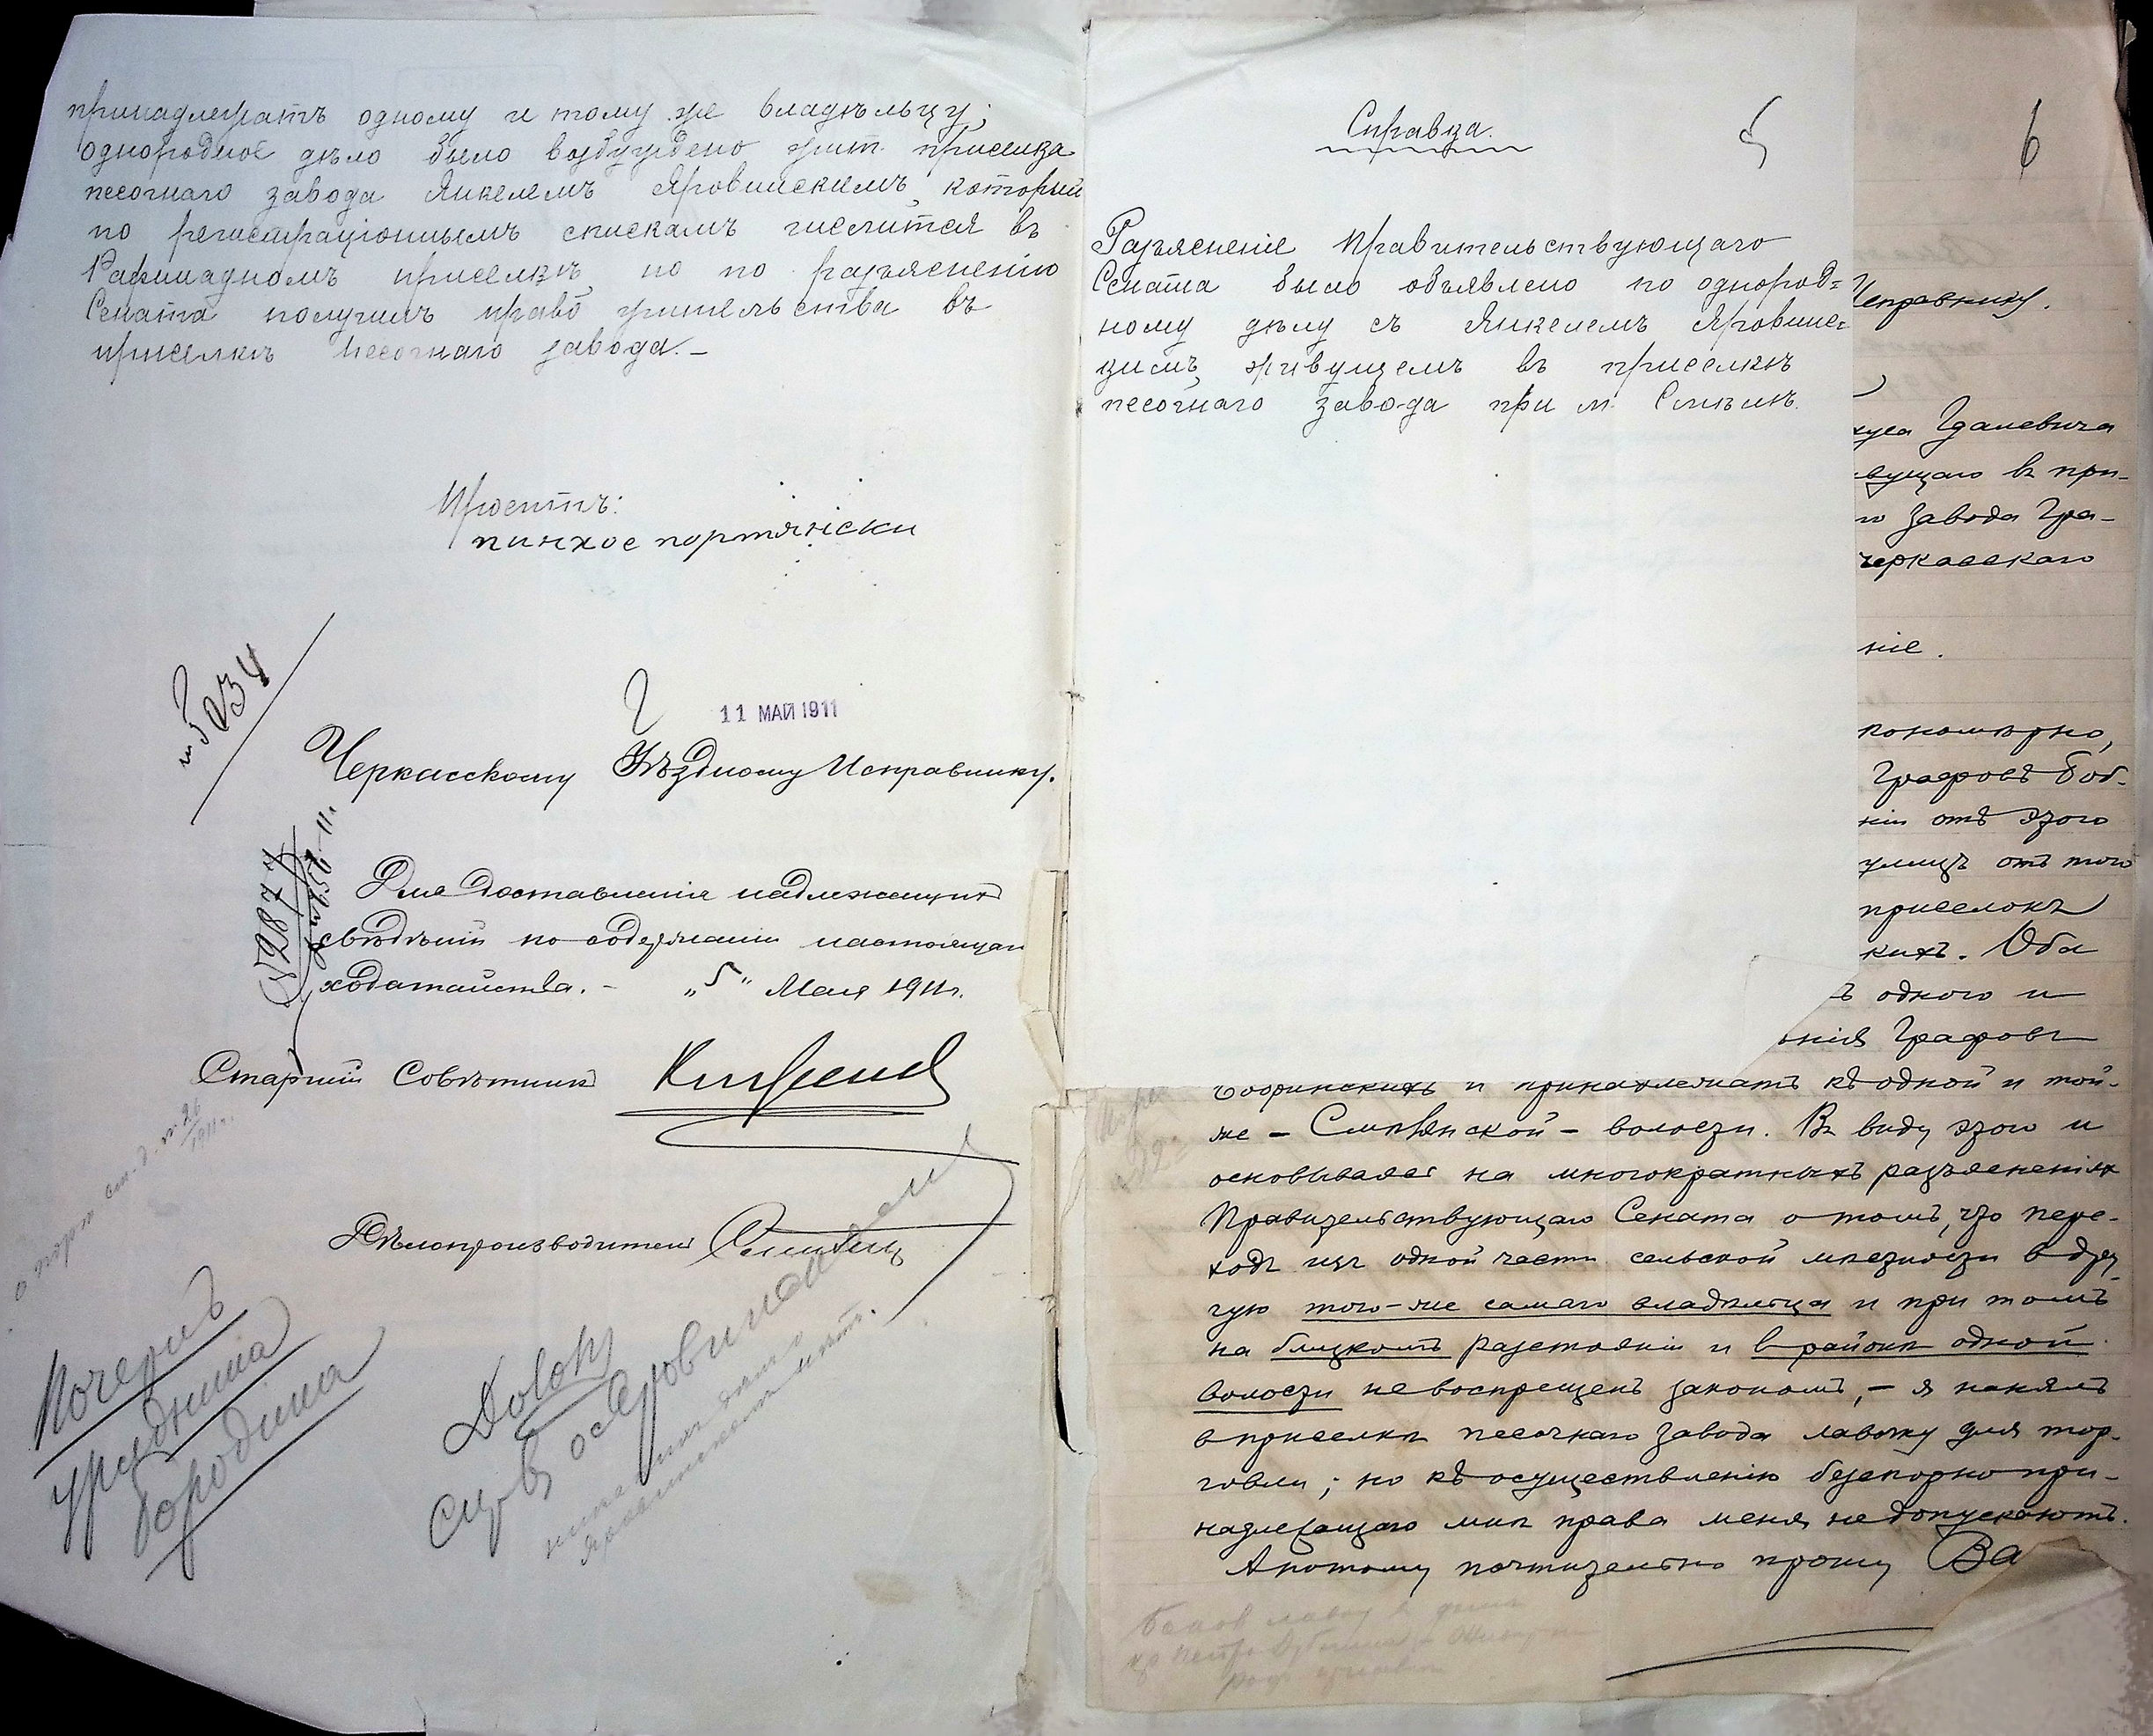 принадлежатъ одному и тому же владѣльцу;
однородное дѣло было возбуждено жит. приселка
песочнаго завода Янкелемъ Яровинскимъ, который
по регистраціоннымъ спискамъ числится въ
Рафинадномъ приселкѣ, но по разъясненію
Сената получилъ право жительства въ
приселкѣ песочнаго завода.-
Проситъ:
пинхос портянски
11 МАЙ 1911
Черкасскому Уѣздному Исправнику.
Для доставленія надлежащихъ
свѣдѣній по содержанію настоящаго
ходатайства.- „5" Мая 1911г.
Старшій Совѣтникъ
Дѣлопроизводитель
Почеркъ
урядника
Бородина
Справка.
5
Разъясненіе Правительствующаго
Сената было объявлено по однород=
ному дѣлу съ Янкелемъ Яровинс=
кимъ, живущемъ въ приселкѣ
песочнаго завода при м. Смѣлѣ.
6
Исправнику.
Гдалевича
вущаго в при-
завода Гра-
черкасскаго
ніе.
кономѣрно,
Графовъ Боб-
ніи отъ этого
улицъ отъ того
приселокъ
кихъ. Оба
ъ одного и
Графовъ
Бобринскихъ и принадлежатъ къ одной и той-
же - Смѣлянской - волости. Въ виду этого и
основываясь на многократныхъ разъясненіях
Правительствующаго Сената о томъ, что пере-
ходъ изъ одной части сельской мѣстности в дру-
гую того-же самаго владѣльца и при томъ
на близкомъ разстояніи и в районѣ одной
волости не воспрещенъ закономъ, - я нанялъ
в приселкѣ песочнаго завода лавочку для тор-
говли; но къ осуществленію безспорно при-
надлежащаго мнѣ права меня не допускаютъ.
А потому почтительно прошу Ва